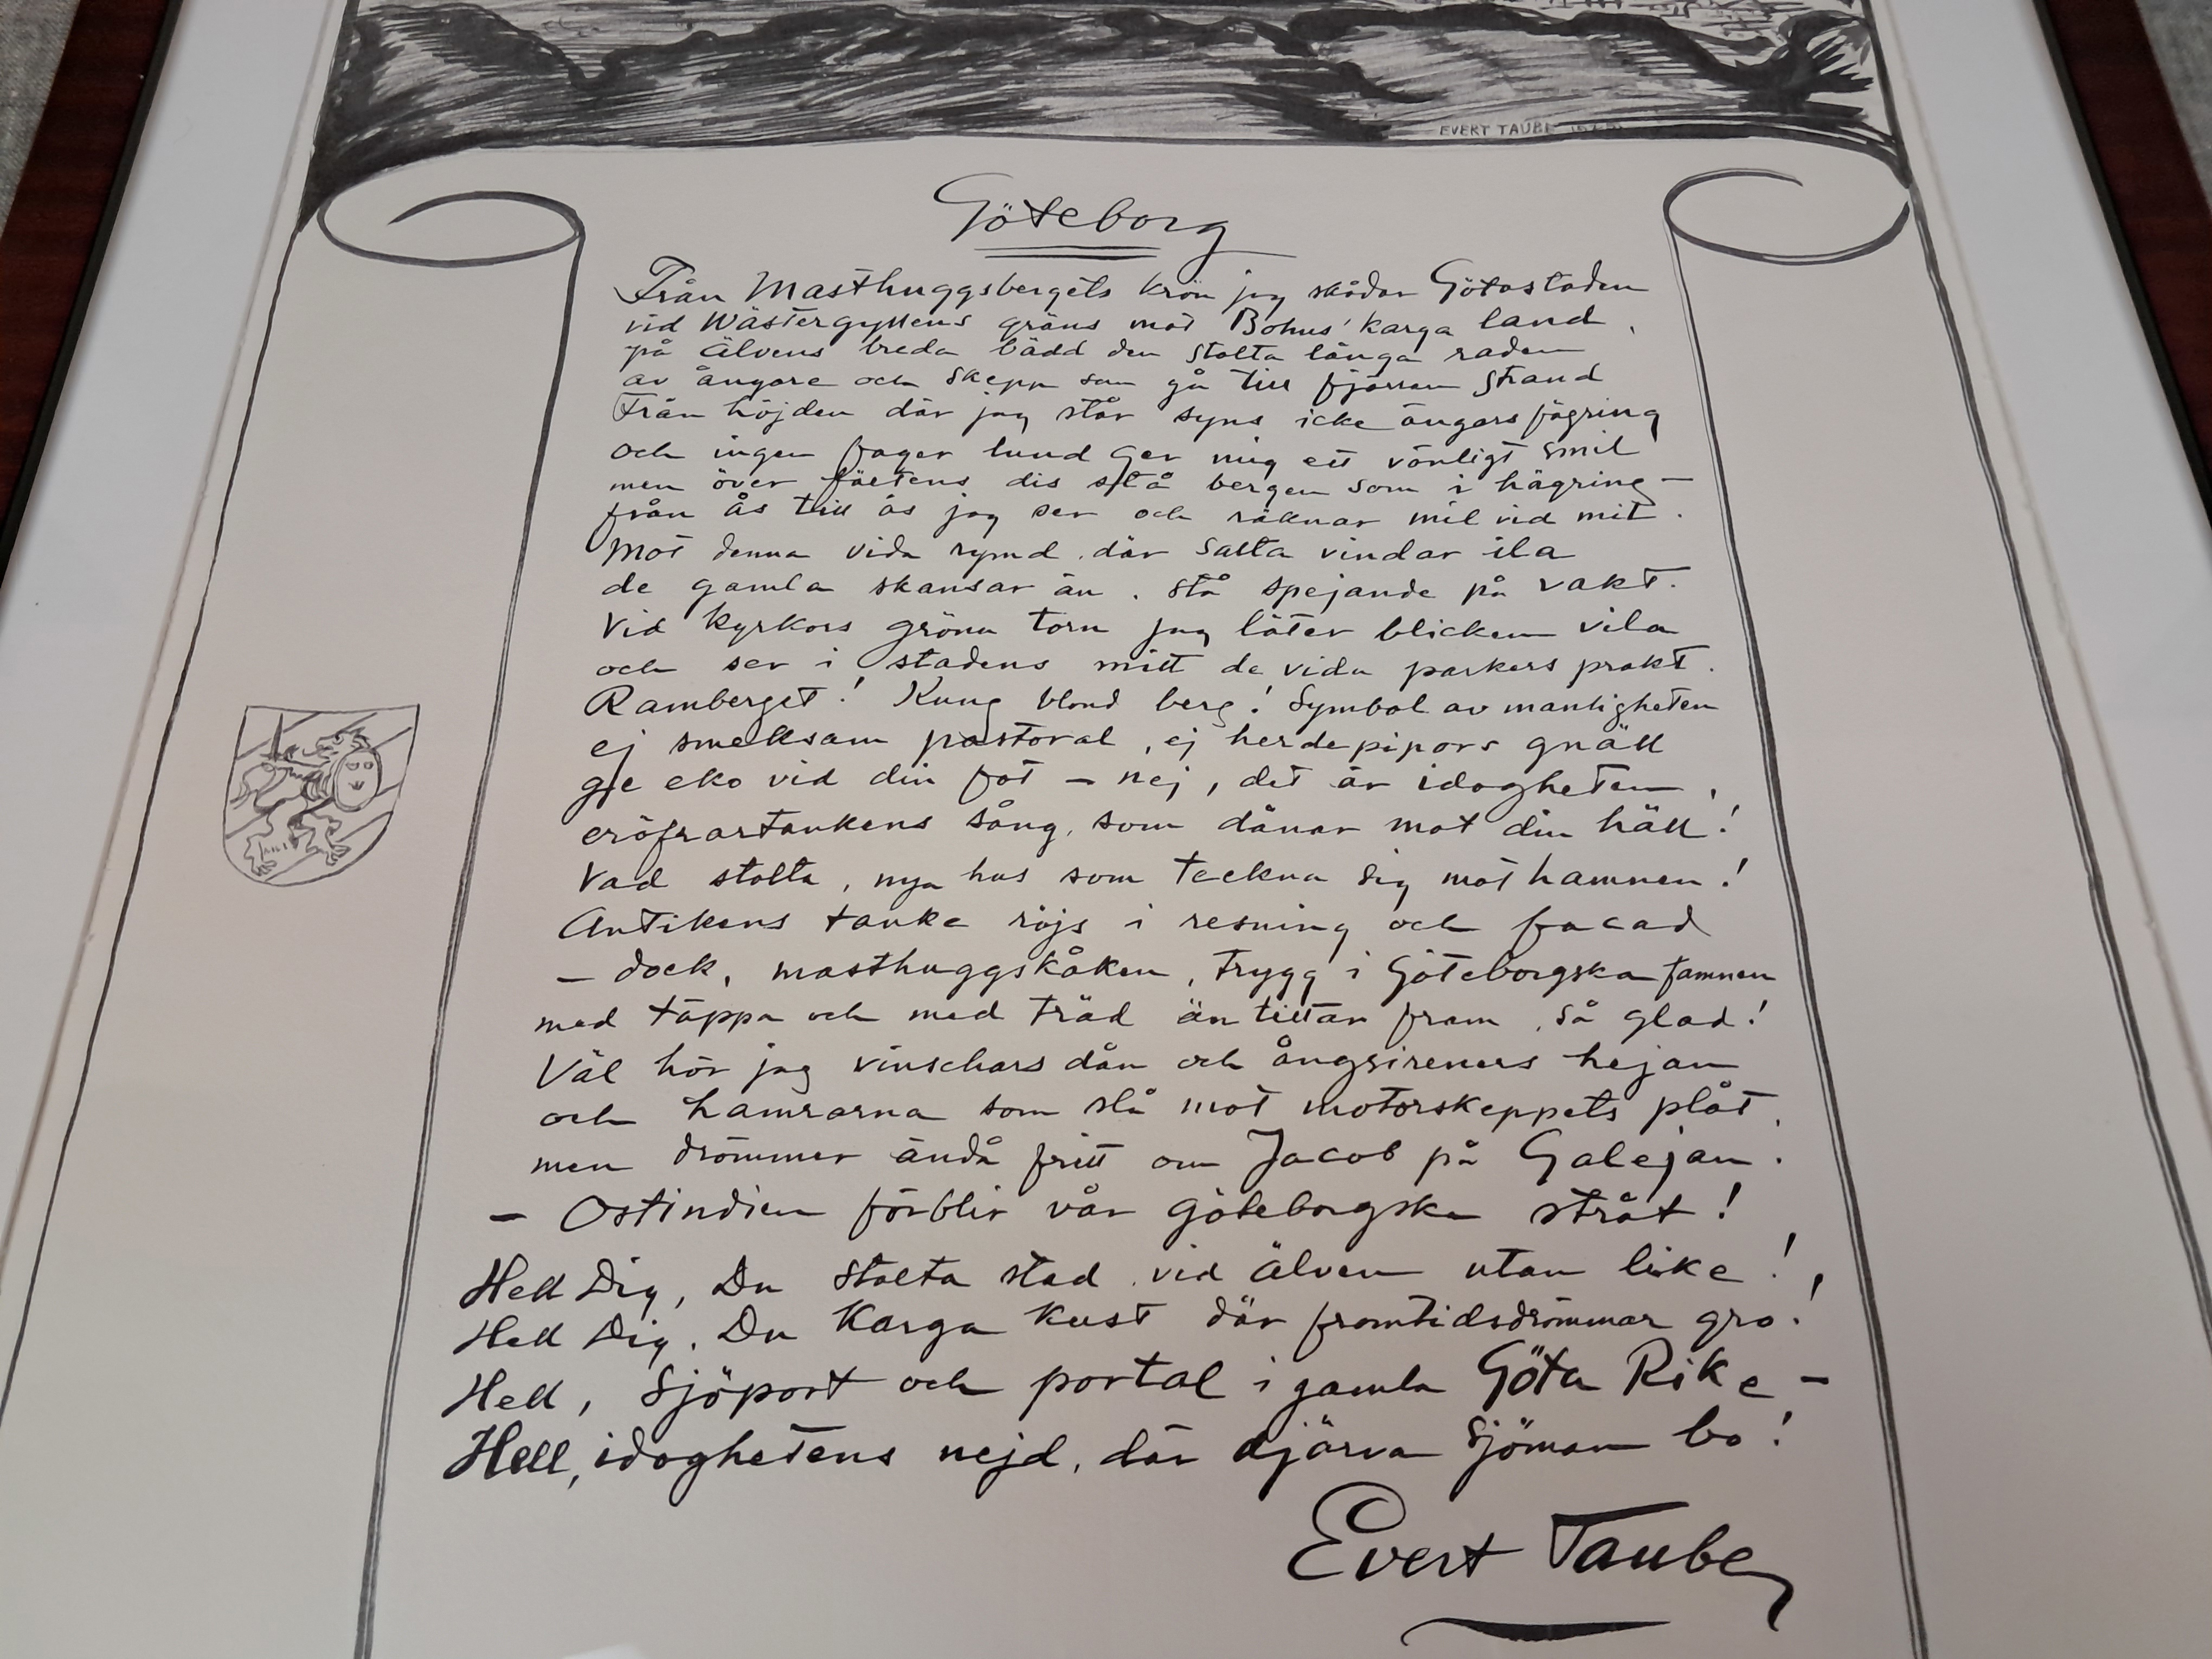 EVERT TAUBE
Göteborg
Från Masthuggsbergets krön jag skådar Götastaden
vid Wästergyllens gräns mot Bohus' karga land,
på älvens breda bädd den stolta långa raden
av ångare och skepp som gå till fjärran strand
Från höjden där jag står syns icke ängars fägring
och ingen fager lund ger mig ett vänligt smil
men över slättens dis stå bergen som i hägring –
från ås till ås jag ser och räknar mil vid mil.
Mot denna vida rymd, där salta vindar ila
de gamla skansar än, stå spejande på vakt.
Vid kyrkors gröna torn jag låter blicken vila
och ser i stadens mitt de vida parkers prakt.
Ramberget! Kung bland berg! Symbol av manligheten
ej smeksam pastoral, ej herdepipors gnäll
ge eko vid din fot – nej, det är idogheten,
eröfrartankens sång, som dånar mot din häll!
Vad stolta, nya hus som teckna sig mot hamnen!
Antikens tanke röjs i resning och facad
– dock, masthuggskåken, trygg i Göteborgska famnen
med täppa och med träd än tittar fram, så glad!
Väl hör jag vinschars dån och ångsireners hejan
och hamrarna som slå mot motorskeppets plåt,
men drömmer ändå fritt om Jacob på Galejan.
– Ostindien förblir vår göteborgska stråt!
Hell Dig, Du stolta stad vid älven utan like!,
Hell Dig, Du Karga Kust där framtidsdrömmar gro!
Hell, Sjöport och portal i gamla Göta Rike –
Hell, idoghetens nejd, där djärva sjömän bo!
Evert Taube